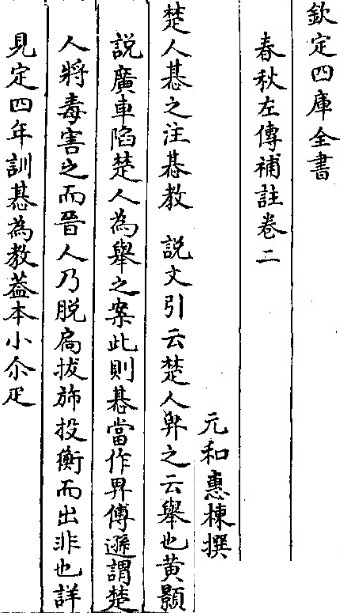 欽定四庫全書
春秋左傳補註卷二
元和惠棟撰
楚人惎之注惎教 説文引云楚人畁之云舉也黄顥
説廣車陷楚人為舉之案此則惎當作畁傅遜謂楚
人將毒害之而晉人乃脱扃拔斾投衡而出非也詳
見定四年訓惎為教葢本小尒疋